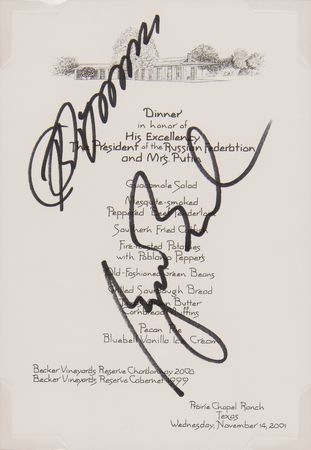 Dinner
in honor of
His Excellency
The President of the Russian Federation
and Mrs. Putin
Guacamole Salad
Mesquite-smoked
Peppered Beef Tenderloin
Southern Fried
Fire-roasted Potatoes
with Poblano Peppers
Old-Fashioned Green Beans
Grilled Sourdough Bread
Butter
Cornbread Muffins
Pecan Pie
Bluebell Vanilla Ice Cream
Becker Vineyards Reserve Chardonnay 2000
Becker Vineyards Reserve Cabernet 1999
Prairie Chapel Ranch
Texas
Wednesday, November 14, 2001